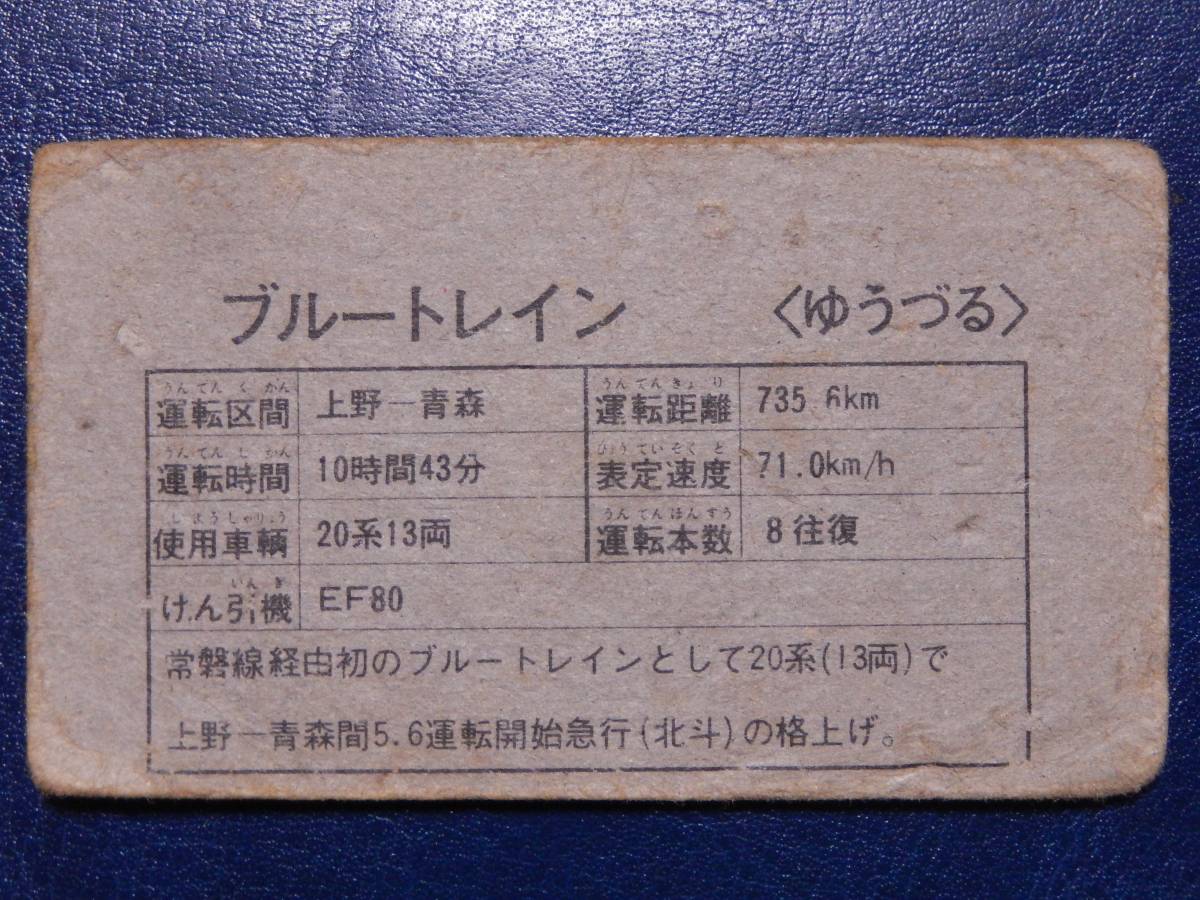 ブルートレイン 〈ゆうづる〉
うんてんくかん
運転区間 上野―青森
うんてんきょり
運転距離 735.6km
うんてんじかん
運転時間 10時間43分
ひょうていそくど
表定速度 71.0km/h
しようしゃりょう
使用車輌 20系13両
うんてんほんすう
運転本数 8往復
いんき
けん引機 EF80
常磐線経由初のブルートレインとして20系(13両)で
上野―青森間5.6運転開始急行(北斗)の格上げ。